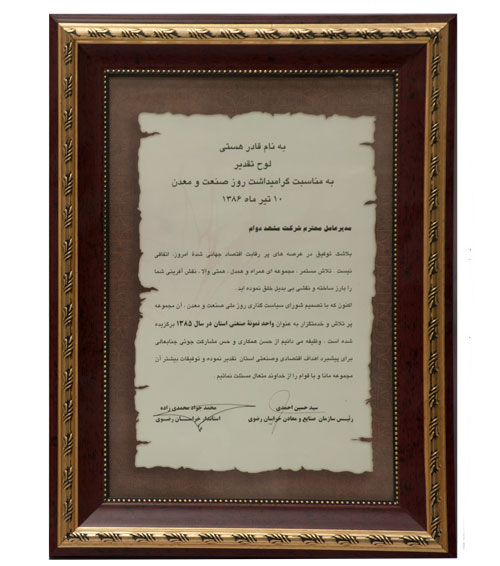 به نام قادر هستی
لوح تقدیر
به مناسبت گرامیداشت روز صنعت و معدن
۱۰ تیر ماه ۱۳۸۶
مدیرعامل محترم شرکت مشهد دوام
بلاشک توفیق در عرصه های پر رقابت اقتصاد جهانی شدهٔ امروز، اتفاقی
نیست . تلاش مستمر ، مجموعه ای همراه و همدل ، همتی والا ، نقش آفرینی شما
را بارز ساخته و نقشی بی بدیل خلق نموده اید.
اکنون که با تصمیم شورای سیاست گذاری روز ملی صنعت و معدن ، آن مجموعه
پر تلاش و خدمتگزار به عنوان واحد نمونهٔ صنعتی استان در سال ۱۳۸۵ برگزیده
شده است . وظیفه می دانیم از حسن همکاری و حس مشارکت جوئی جنابعالی
برای پیشبرد اهداف اقتصادی وصنعتی استان تقدیر نموده و توفیقات بیشتر آن
مجموعه مانا و با قوام را از خداوند متعال مسئلت نمائیم .
سید حسین احمدی
رئیس سازمان صنایع و معادن خراسان رضوی
محمد جواد محمدی زاده
استاندار خراسان رضوی